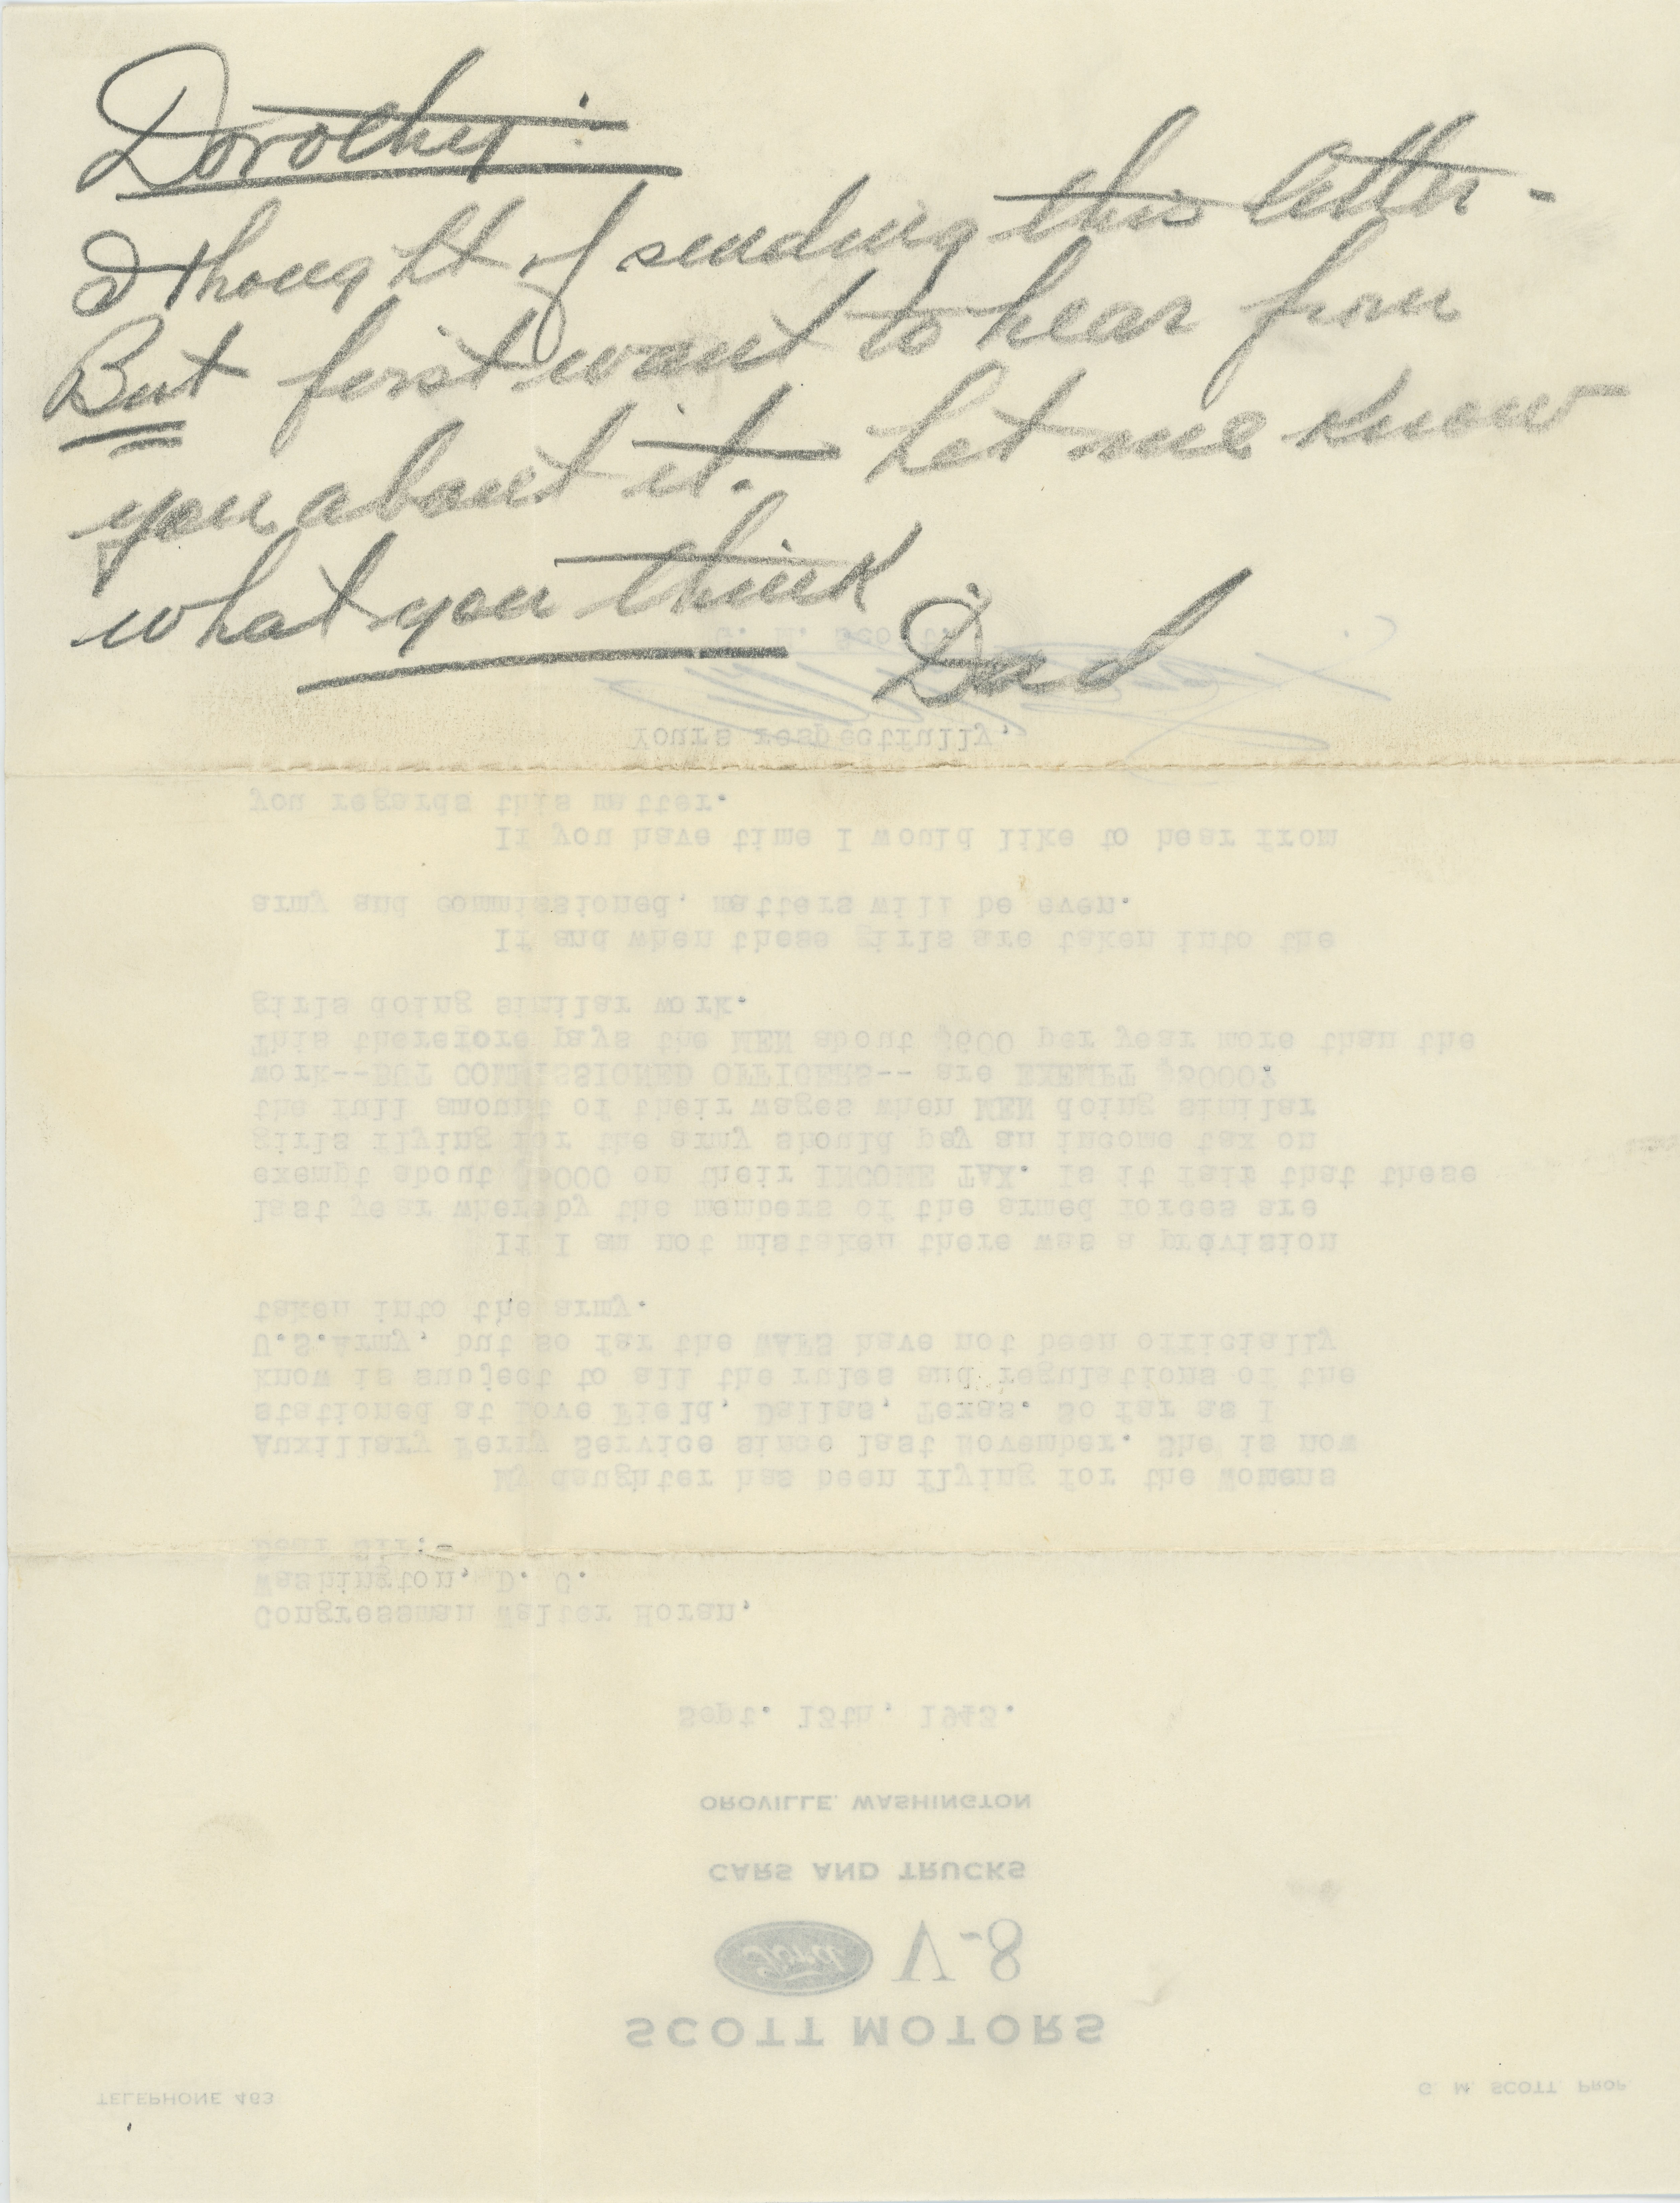 Dorothy:
I thought of sending this letter -
But first want to hear from
you about it. Let me know
what you think
Dad
TELEPHONE 463
G. M. SCOTT. PROP.
SCOTT MOTORS
Ford V-8
CARS AND TRUCKS
OROVILLE, WASHINGTON
Sept. 13th, 1943.
Congressman Walter Horan,
Washington, D. C.
Dear Sir:-
My daughter has been flying for the Womens
Auxiliary Ferry Service since last November. She is now
stationed at Love Field, Dallas, Texas. So far as I
know is subject to all the rules and regulations of the
U.S.Army, but so far the WAFS have not been officially
taken into the army.
If I am not mistaken there was a provision
last year whereby the members of the armed forces are
exempt about $3000 on their INCOME TAX. Is it fair that these
girls flying for the army should pay an income tax on
the full amount of their wages when MEN doing similar
work--BUT COMMISSIONED OFFICERS-- are EXEMPT $3000?
This therefore pays the MEN about $600 per year more than the
girls doing similar work.
If and when these girls are taken into the
army and commissioned, matters will be even.
If you have time I would like to hear from
you regards this matter.
Yours respectfully,
G. M. Scott.